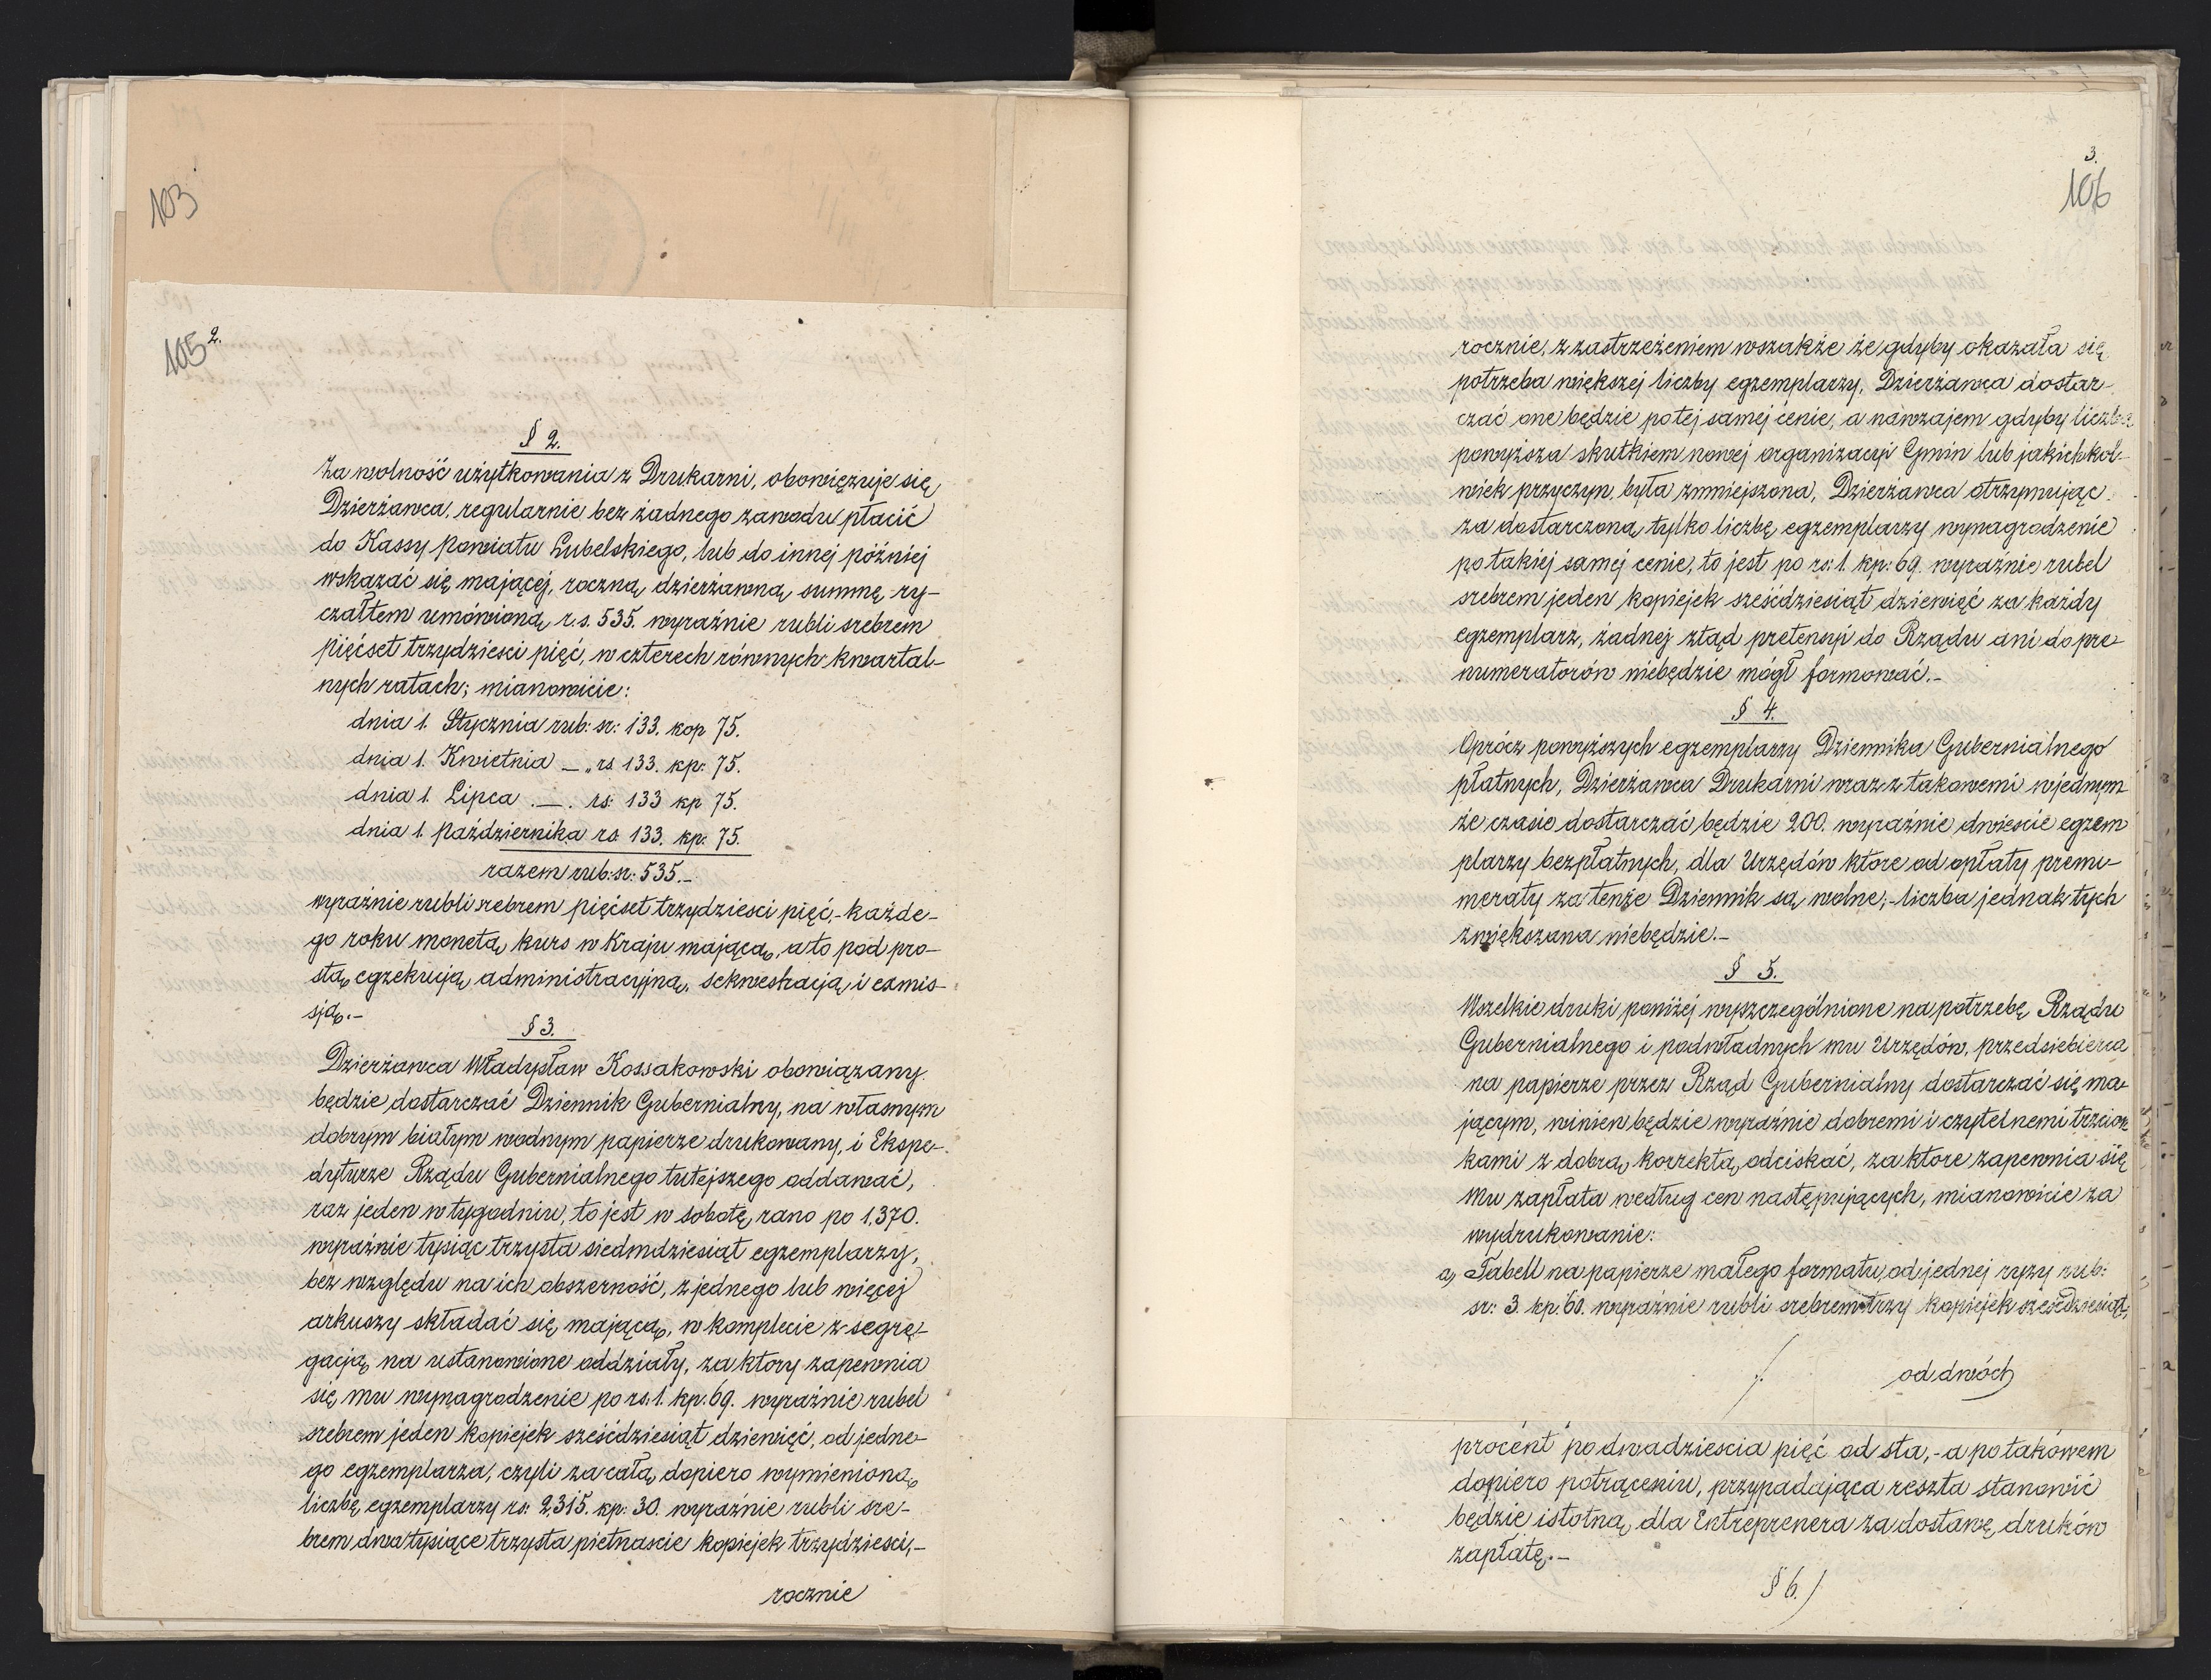 103
105
2.
§ 2.
Za wolność użytkowania z Drukarni, obowięzuje się
Dzierżawca, regularnie bez żadnego zawodu płacić
do Kassy Powiatu Lubelskiego, lub do innej później
wskazać się mającej, roczną dzierżawną summę ry-
czałtem umówioną r.s. 535. wyraźnie rubli srebrem
pięćset trzydzieści pięć, w czterech równych kwartal-
nych ratach; mianowicie:
dnia 1. Stycznia rub: sr: 133. kop 75.
dnia 1. Kwietnia — „ rs 133. kp: 75.
dnia 1. Lipca . — . rs: 133 kp 75.
dnia 1. Października rs. 133. kp: 75.
razem rub: sr: 535.-
wyraźnie rubli srebrem pięćset trzydzieści pięć,- każde-
go roku monetą kurs w Kraju mającą, a to pod pro-
stą egzekucją administracyjną, sekwestracją i exmis-
sją.-
§ 3.
Dzierżawca Władysław Kossakowski obowiązany
będzie dostarczać Dziennik Gubernialny, na własnym
dobrym białym wodnym papierze drukowany, i Ekspe-
dyturze Rządu Gubernialnego tutejszego oddawać,
raz jeden w tygodniu, to jest w sobotę rano po 1,370.
wyraźnie tysiąc trzysta siedmdziesiąt egzemplarzy,
bez względu na ich obszerność, z jednego lub więcej
arkuszy składać się mającą, w komplecie z segre-
gacją na ustanowione oddziały, za ktory zapewnia
się mu wynagrodzenie po rs: 1. kp. 69. wyraźnie rubel
srebrem jeden kopiejek sześćdziesiąt dziewięć, od jedne-
go egzemplarza, czyli za całą dopiero wymienioną
liczbę egzemplarzy rs: 2,315. kp: 30. wyraźnie rubli sre-
brem dwa tysiące trzysta pietnascie kopiejek trzydzieści,-
rocznie
3.
106
rocznie, z zastrzeżeniem wszakże że gdyby okazała się
potrzeba większej liczby egzemplarzy, Dzierżawca dostar-
czać one będzie po tej samej cenie, a nawzajem gdyby liczba
powyższa skutkiem nowej organizacyi Gmin lub jakichkol-
wiek przyczyn była zmniejszona, Dzierżawca otrzymując
za dostarczoną tylko liczbę egzemplarzy wynagrodzenie
po takiej samej cenie, to jest po rs: 1. kp: 69. wyraźnie rubel
srebrem jeden kopiejek sześćdziesiąt dziewięć za każdy
egzemplarz, żadnej ztąd pretensyi do Rządu ani do pre-
numeratorów niebędzie mógł formować.-
§ 4.
Oprócz powyższych egzemplarzy Dziennika Gubernialnego
płatnych, Dzierżawca Drukarni wraz z takowemi w jednym
że czasie dostarczać będzie 200. wyraźnie dwieście egzem
plarzy bezpłatnych, dla Urzędów które od opłaty prenu-
meraty za tenże Dziennik są wolne;- liczba jednak tych
zwiększana niebędzie.-
§ 5.
Wszelkie druki poniżej wyszczególnione na potrzebę Rządu
Gubernialnego i podwładnych mu Urzędów, przedsiebierca
na papierze przez Rząd Gubernialny dostarczać się ma-
jącym, winien będzie wyraźnie dobremi i czytelnemi trzcion
kami z dobrą korrektą odciskać, za które zapewnia się
mu zapłata według cen następujących, mianowicie za
wydrukowanie:
a, Tabell na papierze małego formatu, od jednej ryzy rub:
sr: 3. kp. 60. wyraźnie rubli srebrem trzy kopiejek sześćdziesiąt,
od dwóch
procent po dwadzieścia pięć od sta,- a po takowem
dopiero potrąceniu, przypadająca reszta stanowić
będzie istotną dla Entreprenera za dostawę druków
zapłatę.-
§ 6.